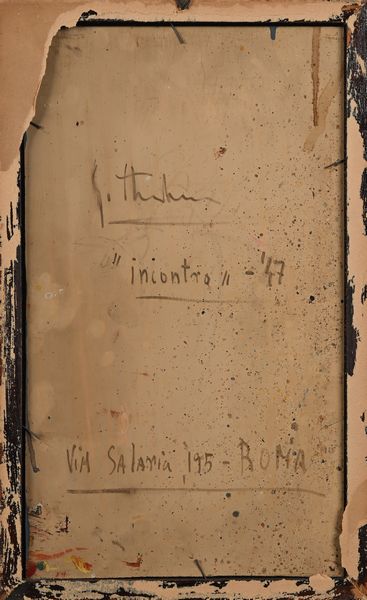 "incontro" - '47
Via Salaria, 195 - ROMA